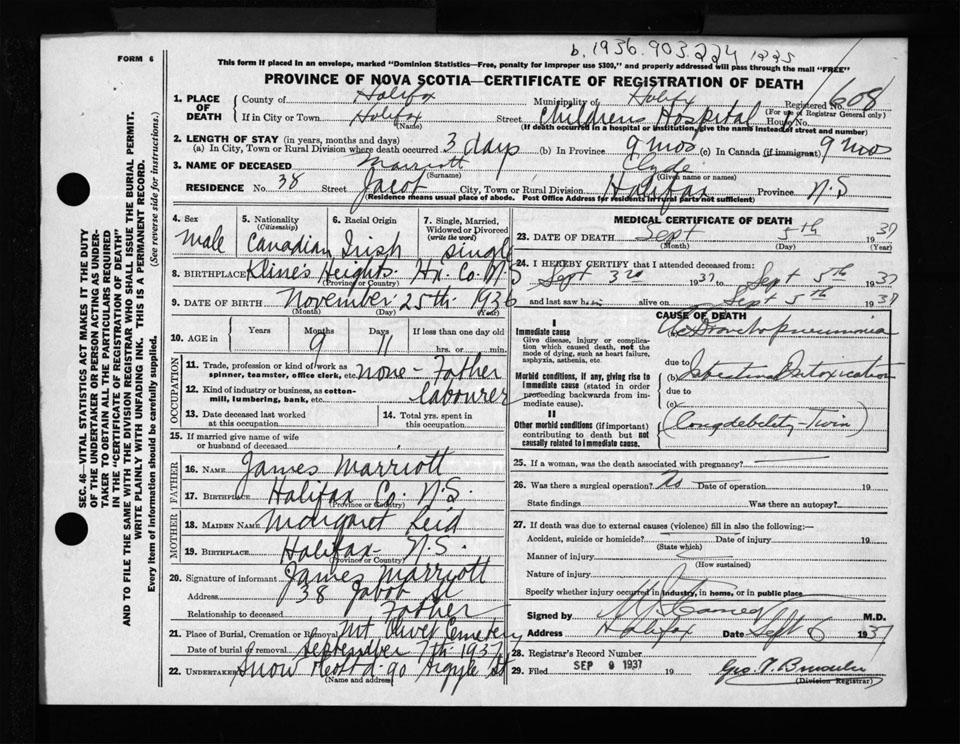 b. 1936. 903.224 1225
FORM 6
This form if placed in an envelope, marked "Dominion Statistics—Free, penalty for improper use $300," and properly addressed will pass through the mail "FREE"
PROVINCE OF NOVA SCOTIA—CERTIFICATE OF REGISTRATION OF DEATH
SEC. 46—VITAL STATISTICS ACT MAKES IT THE DUTY
OF THE UNDERTAKER OR PERSON ACTING AS UNDER-
TAKER TO OBTAIN ALL THE PARTICULARS REQUIRED
IN THE "CERTIFICATE OF REGISTRATION OF DEATH"
AND TO FILE THE SAME WITH THE DIVISION REGISTRAR WHO SHALL ISSUE THE BURIAL PERMIT.
WRITE PLAINLY WITH UNFADING INK. THIS IS A PERMANENT RECORD.
Every item of information should be carefully supplied. (See reverse side for instructions.)
1. PLACE OF DEATH
County of Halifax Municipality of Halifax Registered No. 1608
(For use of Registrar General only)
If in City or Town Halifax Street Childrens Hospital House No.
(Name) (If death occurred in a hospital or institution, give the name instead of street and number)
2. LENGTH OF STAY (in years, months and days)
(a) In City, Town or Rural Division where death occurred 3 days (b) In Province 9 mos (c) In Canada (if immigrant) 9 mos
3. NAME OF DECEASED Marriott Clyde
(Surname) (Given name or names)
RESIDENCE No. 38 Street Jacob City, Town or Rural Division Halifax Province N.S
(Residence means usual place of abode. Post Office Address for residents in rural parts not sufficient)
4. Sex Male
5. Nationality (Citizenship) Canadian
6. Racial Origin Irish
7. Single, Married, Widowed or Divorced (write the word) Single
8. BIRTHPLACE Kline's Heights. Hx. Co. N.S
(Province or Country)
9. DATE OF BIRTH November 25th 1936
(Month) (Day) (Year)
10. AGE in Years Months 9 Days 11 If less than one day old hrs. or min.
OCCUPATION
11. Trade, profession or kind of work as spinner, teamster, office clerk, etc. none - Father
12. Kind of industry or business, as cotton-mill, lumbering, bank, etc. labourer
13. Date deceased last worked at this occupation
14. Total yrs. spent in this occupation.
15. If married give name of wife or husband of deceased
FATHER
16. NAME James Marriott
17. BIRTHPLACE Halifax Co. N.S.
(Province or Country)
MOTHER
18. MAIDEN NAME Margaret Reid
19. BIRTHPLACE Halifax - N.S.
(Province or Country)
20. Signature of informant James Marriott
Address 38 Jacob St
Relationship to deceased Father
21. Place of Burial, Cremation or Removal Mt Olivet Cemetery
Date of burial or removal September 7th 1937
22. UNDERTAKER Snow & Co Ltd. 90 Argyle St
(Name and address)
MEDICAL CERTIFICATE OF DEATH
23. DATE OF DEATH Sept 5th 1937
(Month) (Day) (Year)
24. I HEREBY CERTIFY that I attended deceased from:
Sept 3rd 1937 to Sept 5th 1937
and last saw him alive on Sept 5th 1937
CAUSE OF DEATH
I
Immediate cause
Give disease, injury or complication which caused death, not the mode of dying, such as heart failure, asphyxia, asthenia, etc.
(a) Bronchopneumonia
due to
Morbid conditions, if any, giving rise to immediate cause (stated in order proceeding backwards from immediate cause).
(b) Intestinal Intoxication
due to
(c)
II
Other morbid conditions (if important) contributing to death but not causally related to immediate cause.
(Cong debility - Twin)
25. If a woman, was the death associated with pregnancy?
26. Was there a surgical operation? No Date of operation 19
State findings Was there an autopsy?
27. If death was due to external causes (violence) fill in also the following:
Accident, suicide or homicide? Date of injury 19
(State which)
Manner of injury
(How sustained)
Nature of injury
Specify whether injury occurred in industry, in home, or in public place
Signed by M.D.
Address Halifax Date Sept 6 1937
28. Registrar's Record Number
29. Filed SEP 9 1937 19
(Division Registrar)